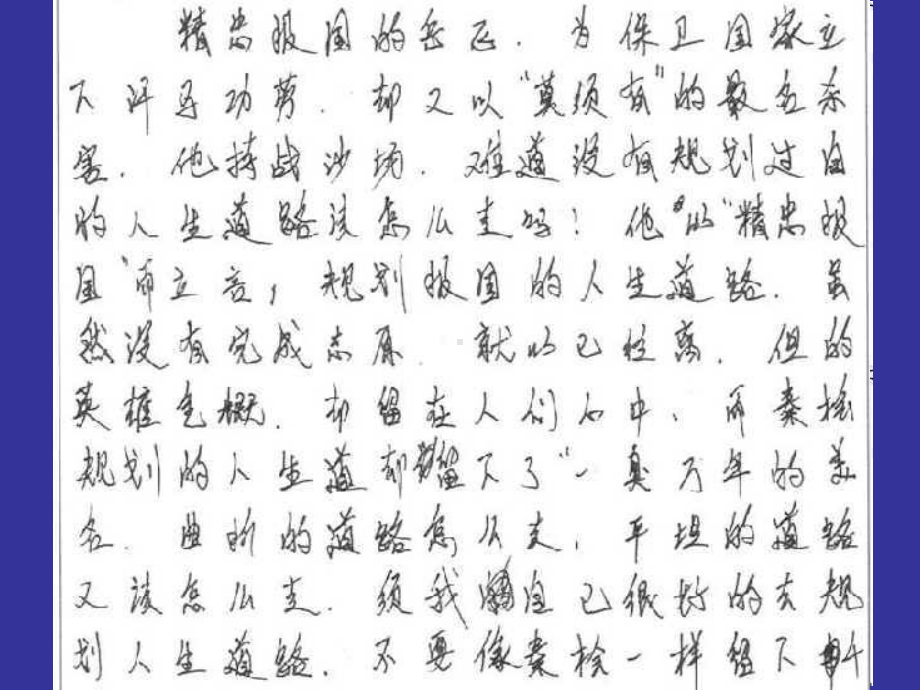 精忠报国的岳飞．为保卫国家立
下汗马功劳．却又以"莫须有"的数名杀
害．他持战沙场．难道没有规划过自
的人生道路该怎么走吗！他的"精忠报
国"而立言，规划报国的人生道路．虽
然没有完成志愿．就以已经离．但的
英雄气概．却留在人们心中，而秦桧
规划的人生道却留下了"一臭万年的美
名．曲折的道路怎么走，平坦的道路
又该怎么走．须我自己很好的去规
划人生道路．不要像秦桧一样留下